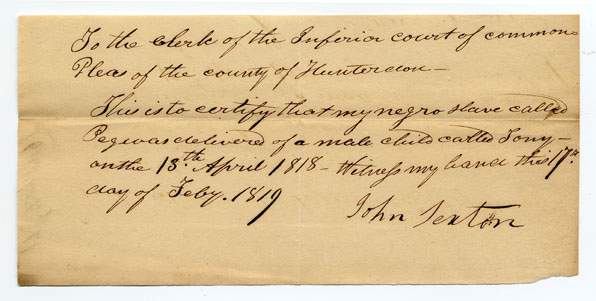 To the Clerk of the Inferior court of common
Pleas of the county of Hunterdon—
This is to certify that my negro slave called
Peg was delivered of a male child called Tony—
on the 13th April 1818 – Witness my hand this 17th
day of Feby. 1819
John Sexton